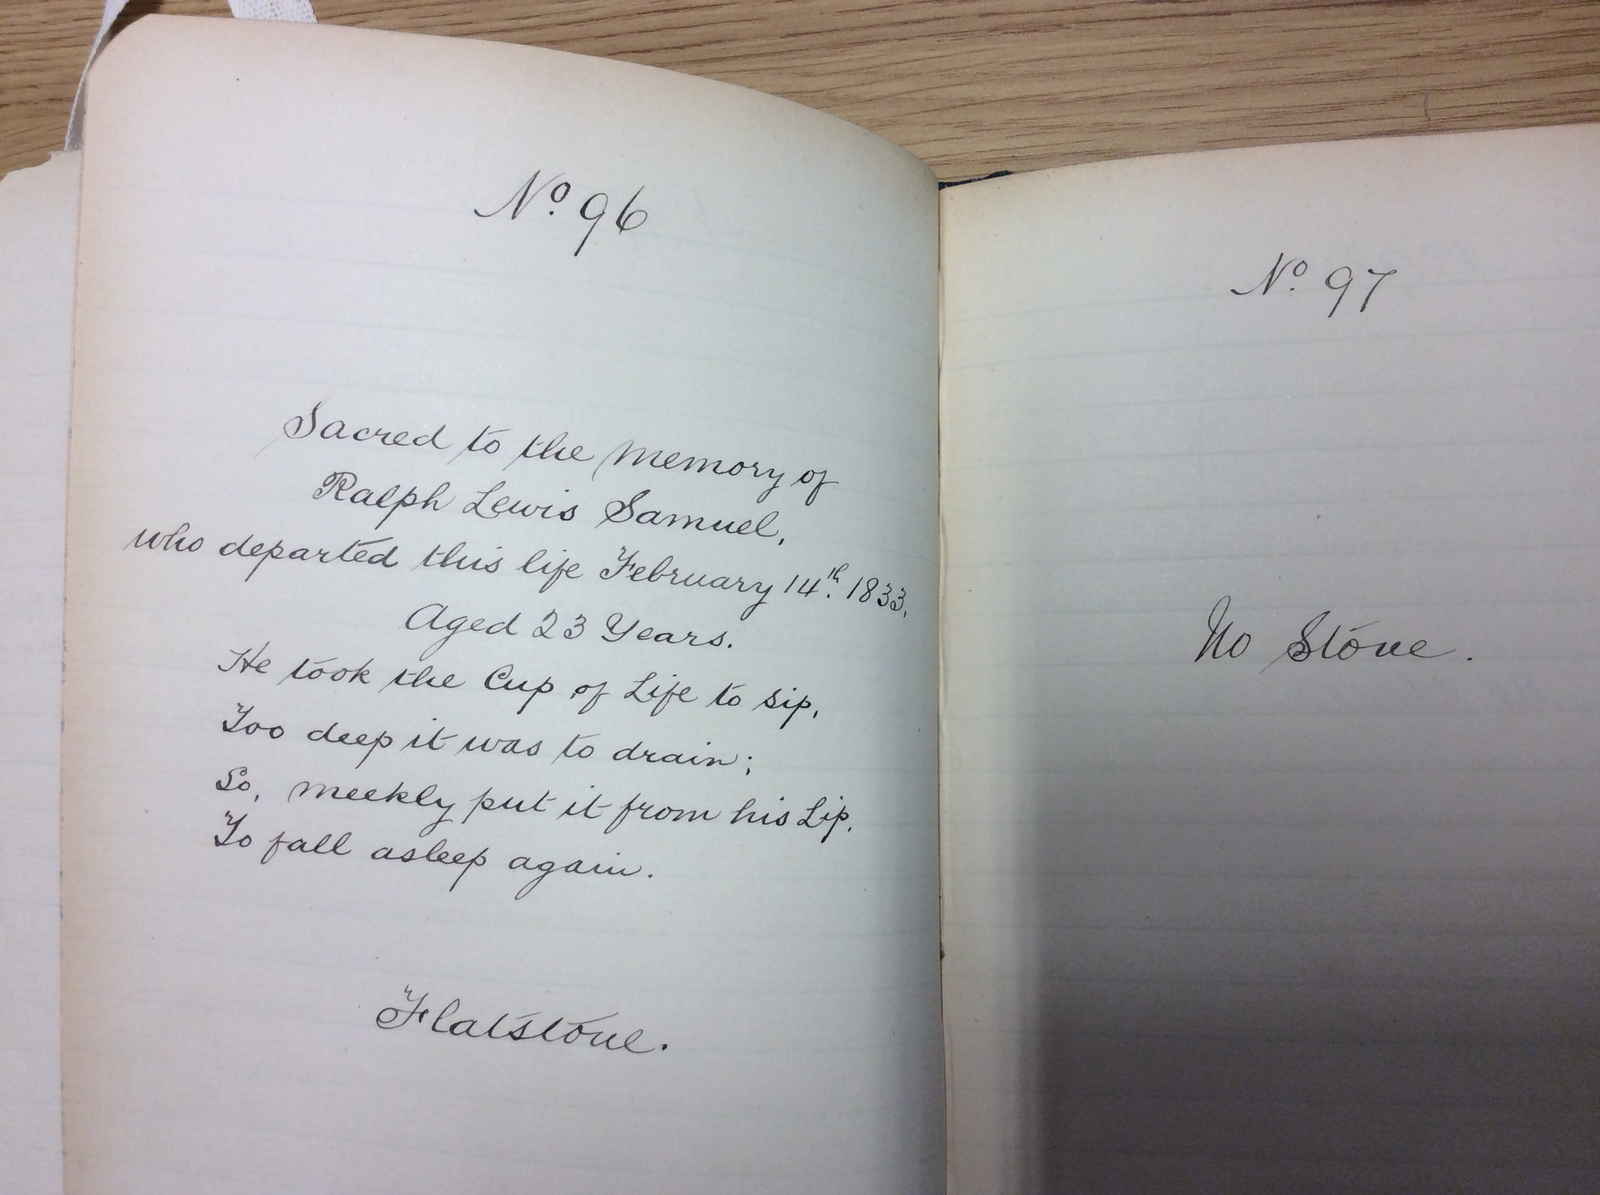 No. 96
Sacred to the Memory of
Ralph Lewis Samuel,
who departed this life February 14th. 1833.
Aged 23 Years.
He took the Cup of Life to sip,
Too deep it was to drain;
So, meekly put it from his Lip,
To fall asleep again.
Flatstone.
No. 97
No Stone.